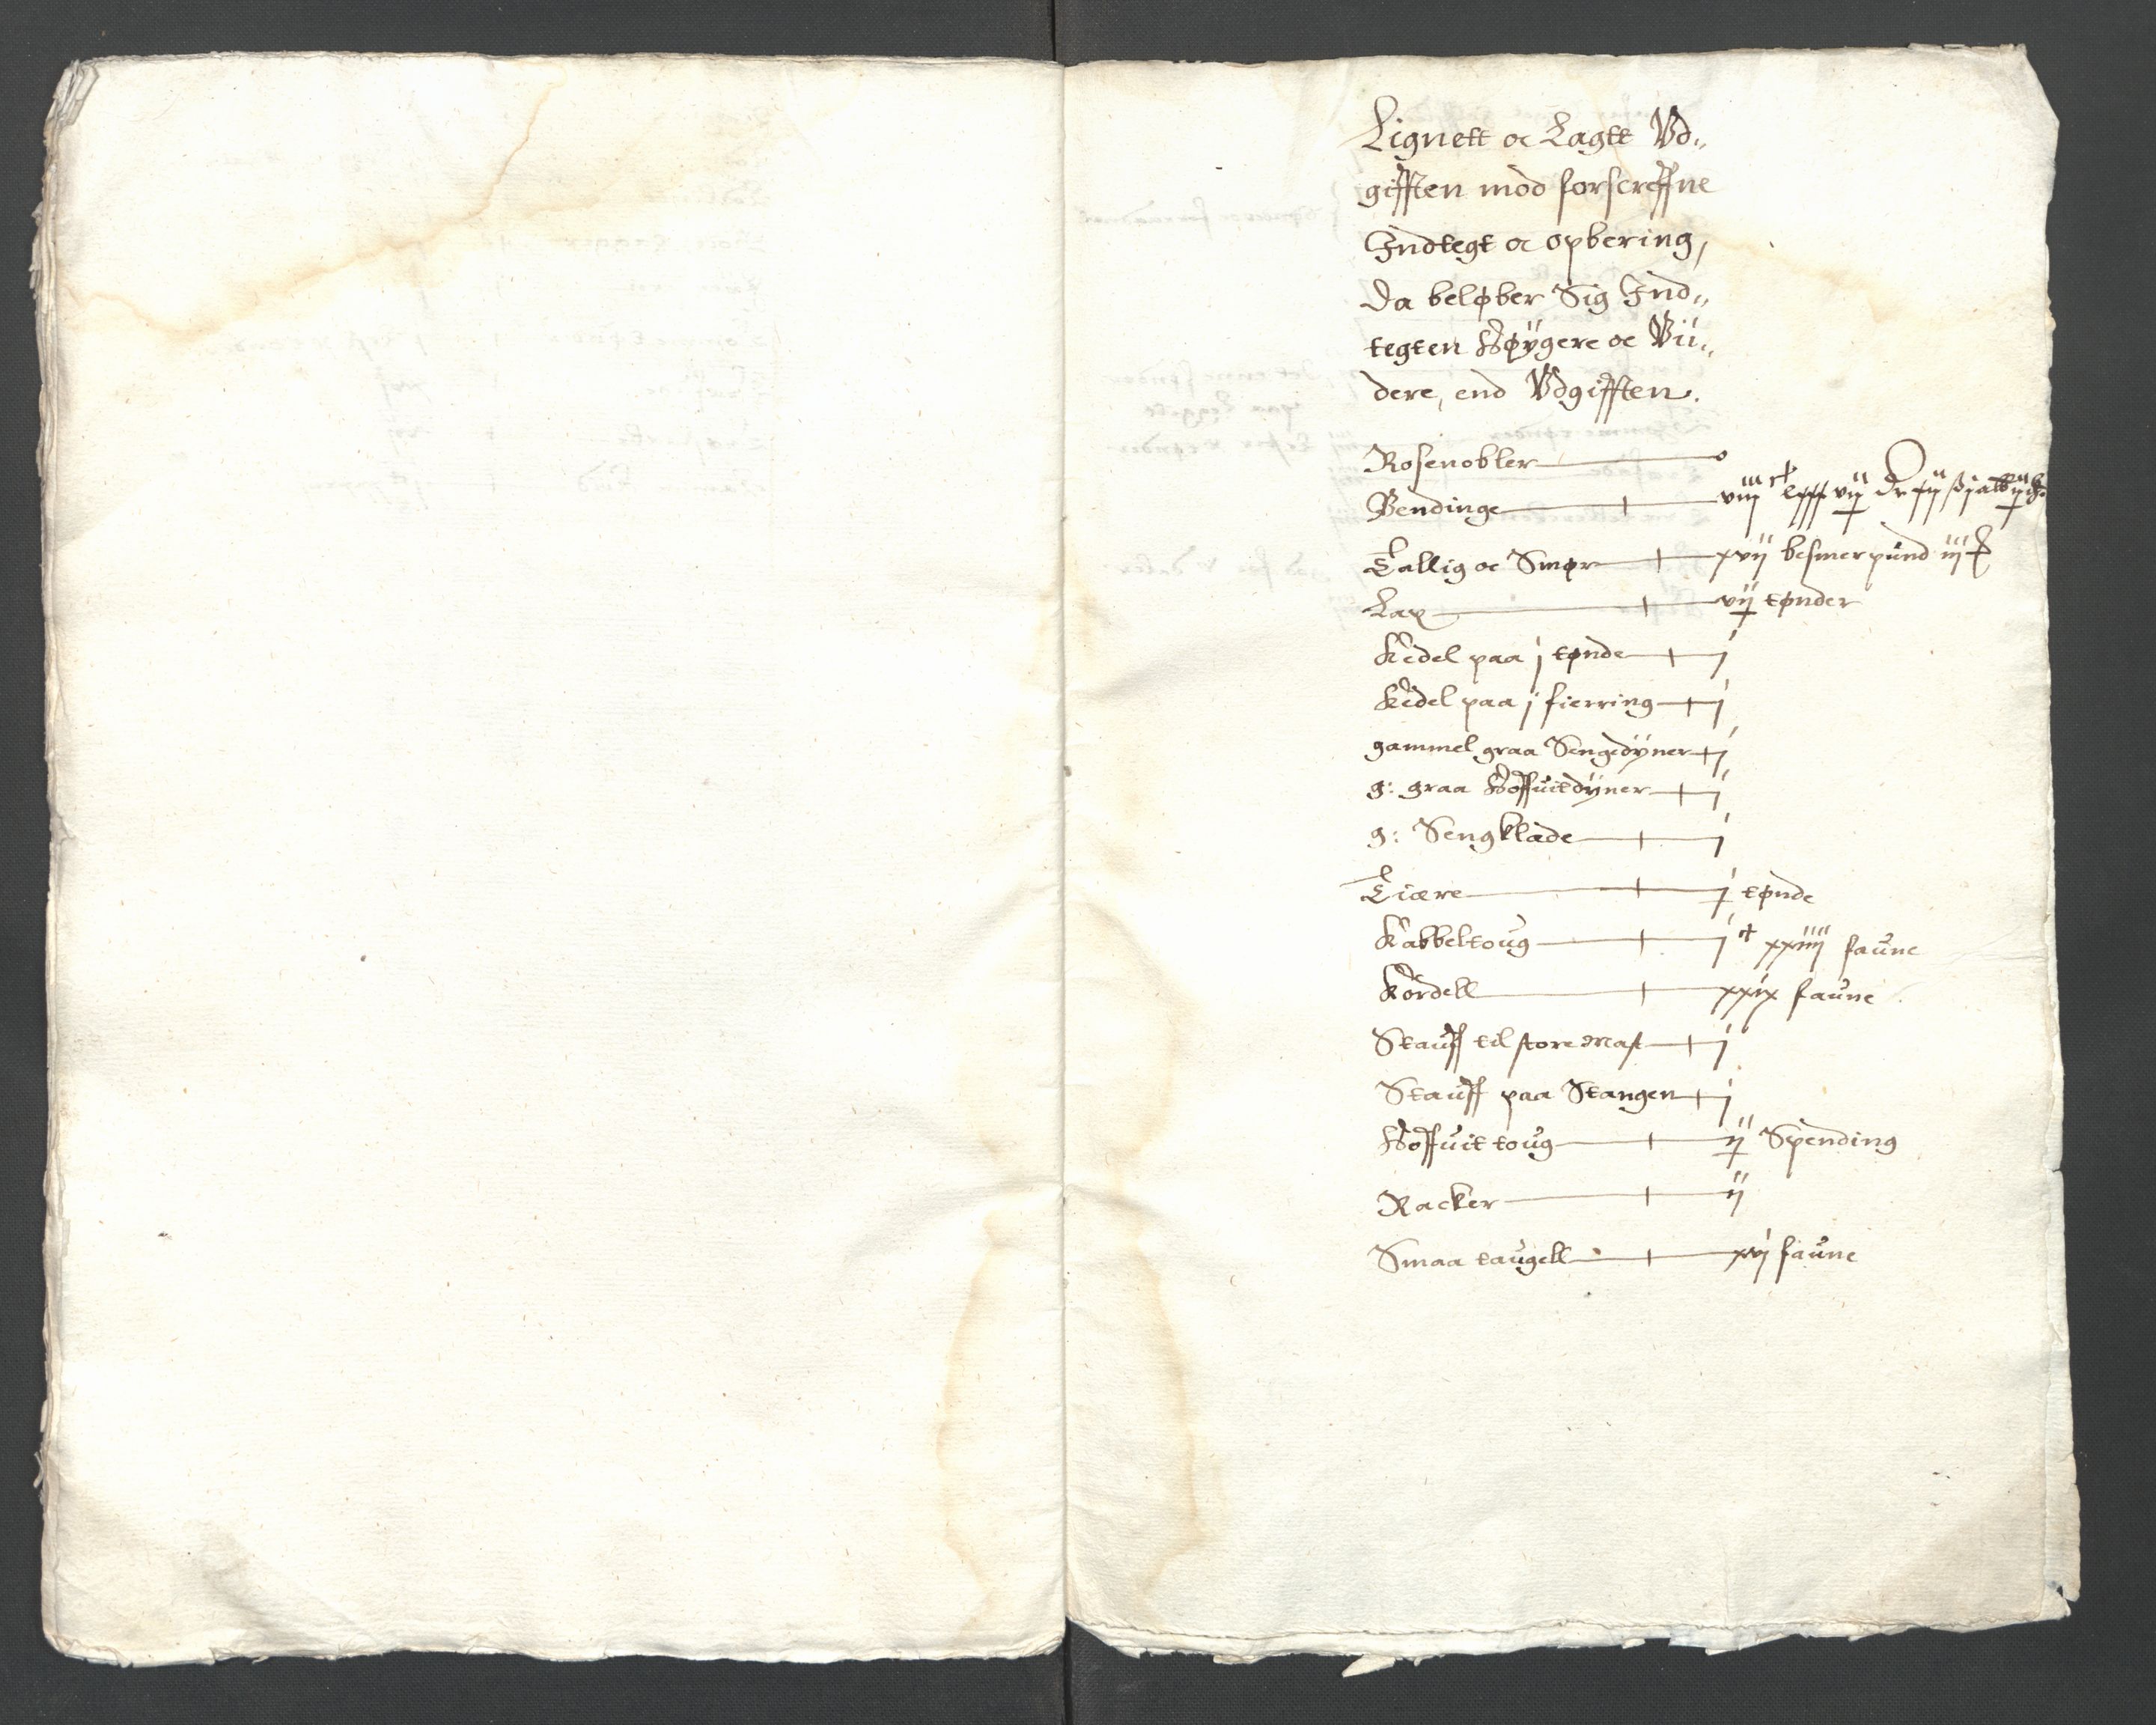 Lignett oc Lagtt Vd„
gifften mod forscreffne
Indtegt oc opbering,
da beløber Sig Ind„
tegten Høygere oc Vii„
dere, end Vdgifften.
Rosenobler — o
Pendinge — viij c lxxx vij dr xij ß j alb
Tallig oc Smør — xvij besmerpund iij
Lax — vij tønder
Kedel paa j tønde — j
Kedel paa j fierring — j
gammel graa Sengedyner — j
g: graa Hoffuitdyner — j
g: Sengklæde — j
Tiære — j tønde
Kabbeltoug — j c xxiiij faune
Kordell — xxix faune
Stauff til store Mast — j
Stauff paa Stangen — j
Hoffuit toug — ij Spending
Racker — ij
Smaa taugell — xvj faune